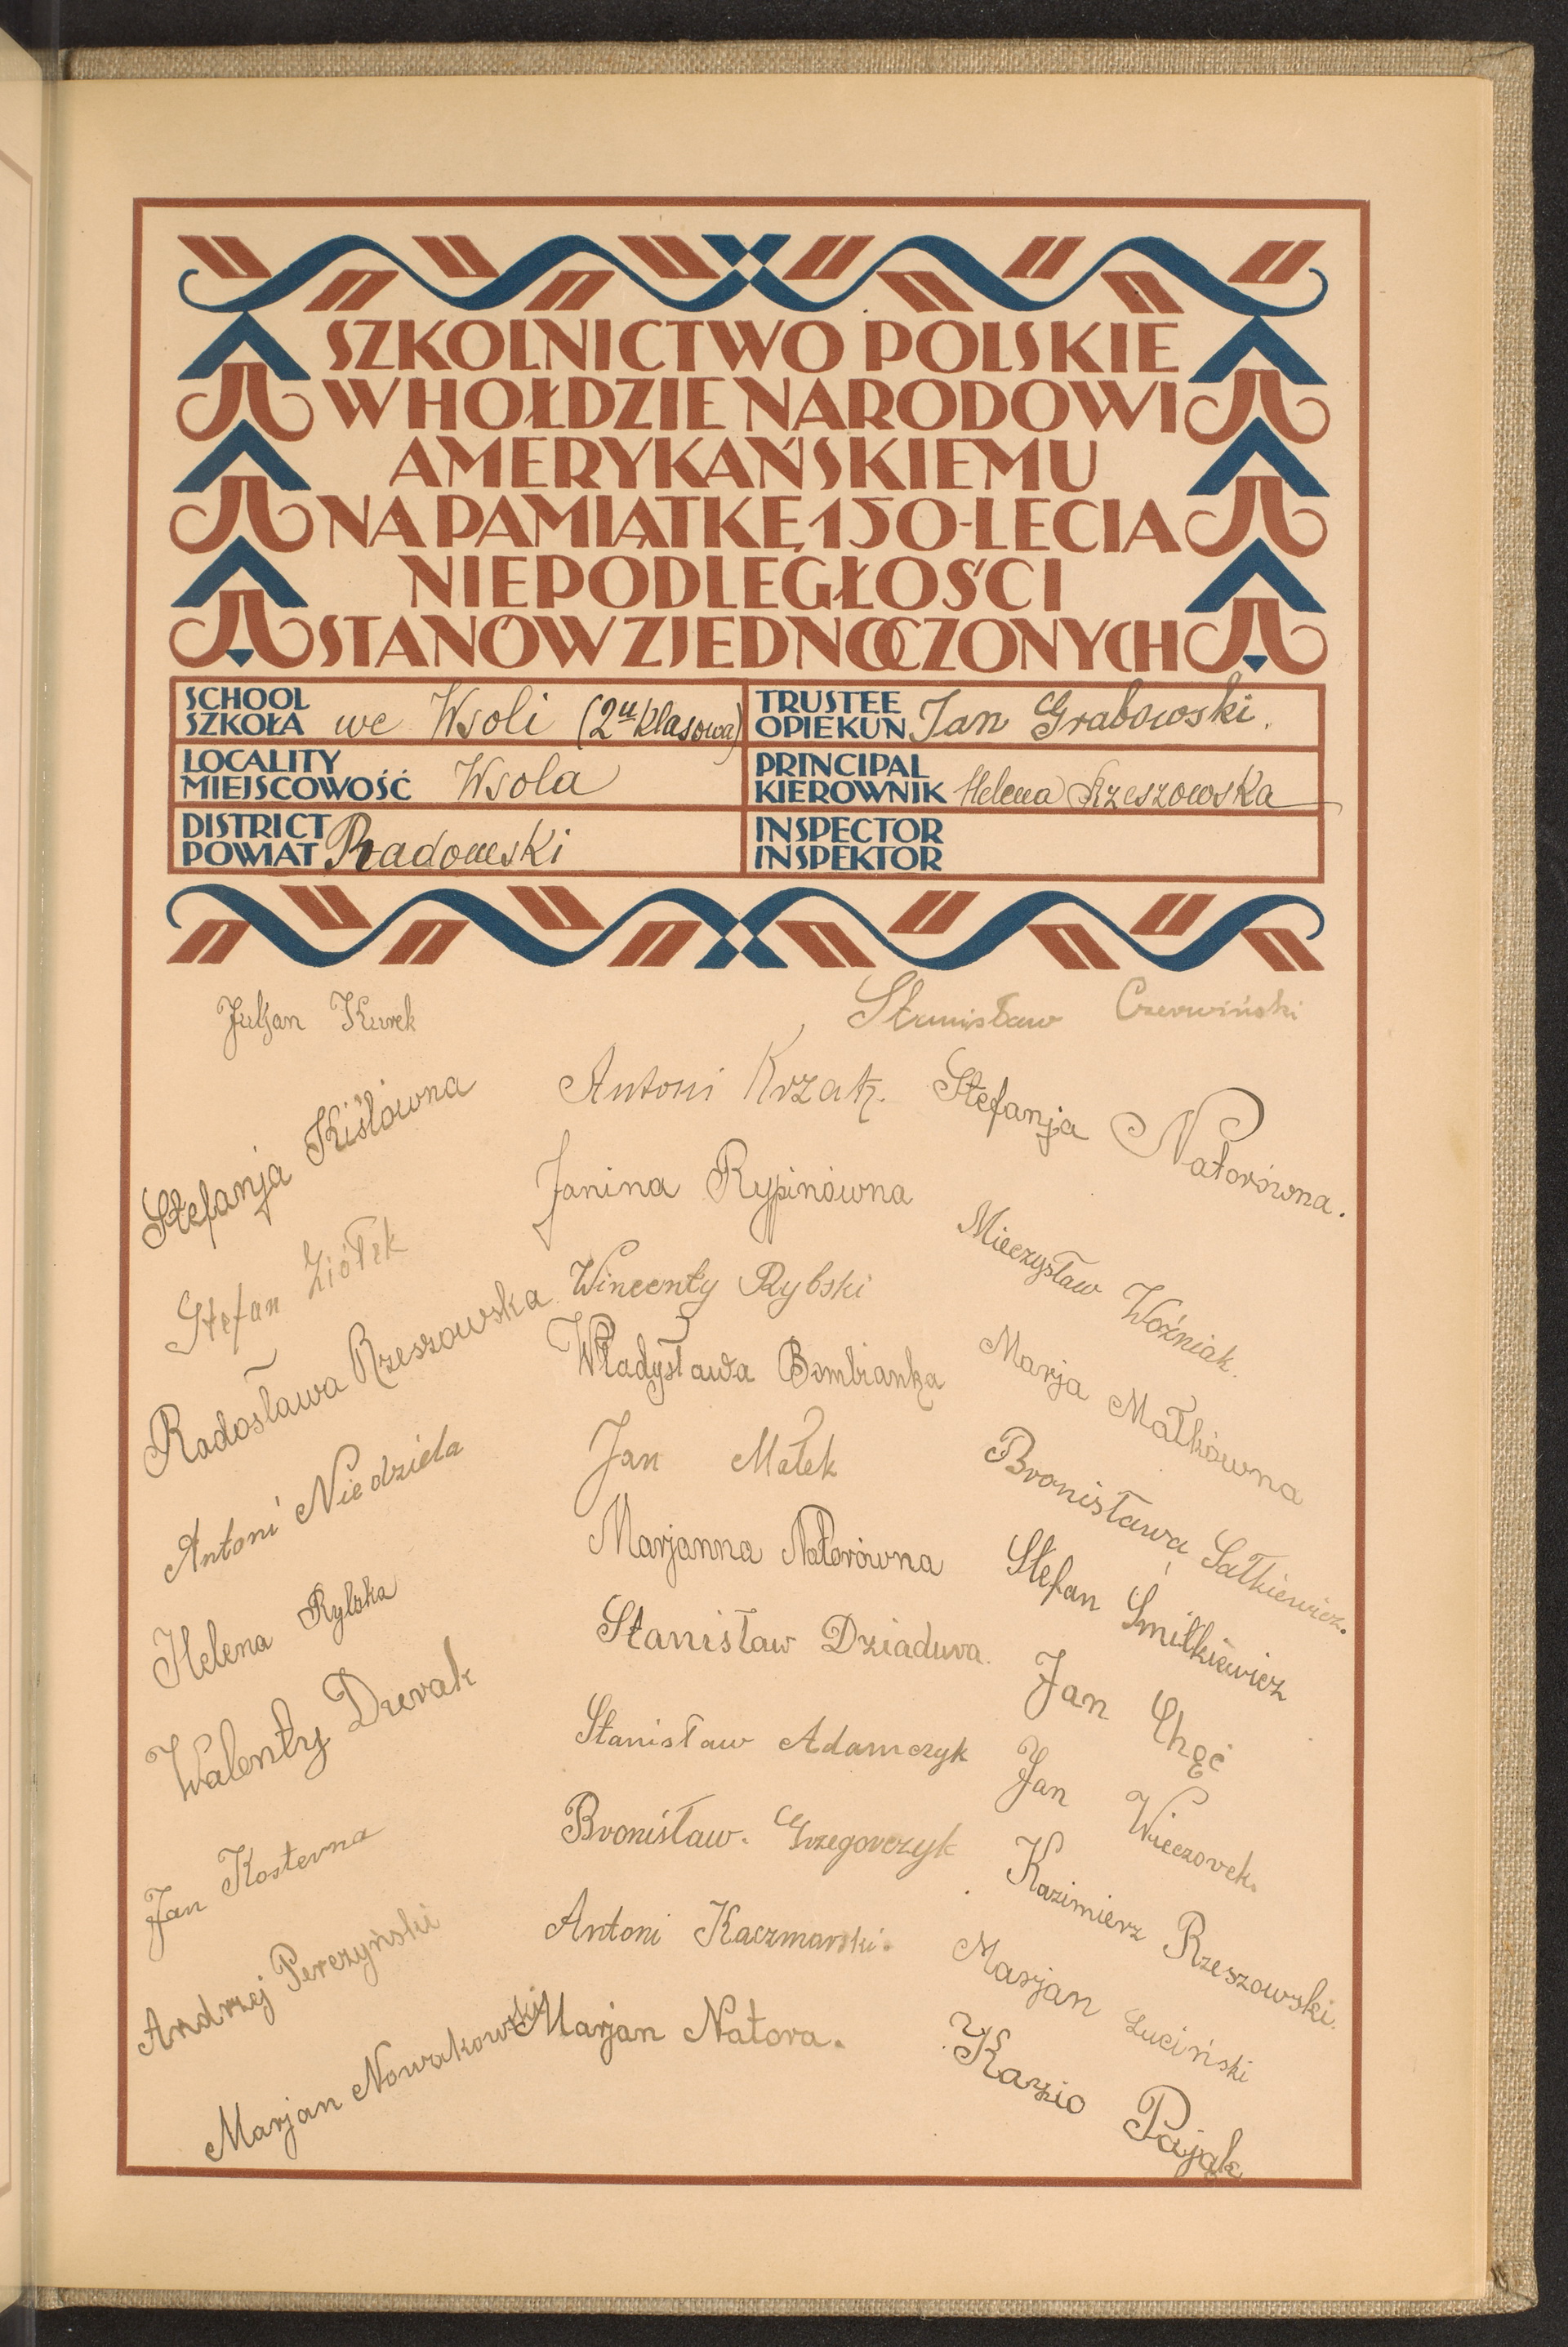 SZKOLNICTWO POLSKIE
W HOŁDZIE NARODOWI
AMERYKAŃSKIEMU
NA PAMIĄTKĘ 150-LECIA
NIEPODLEGŁOŚCI
STANÓW ZJEDNOCZONYCH
SCHOOL
SZKOŁA we Wsoli (2u klasowa)
TRUSTEE
OPIEKUN Jan Grabowski.
LOCALITY
MIEJSCOWOŚĆ Wsola
PRINCIPAL
KIEROWNIK Helena Rzeszowska
DISTRICT
POWIAT Radomski
INSPECTOR
INSPEKTOR
Juljan Kurek
Stefanja Kiślówna
Stefan Ziółek
Radosława Rzeszowska
Antoni Niedziela
Helena Rylska
Walenty Drerak
Jan Kosterna
Andrzej Perczyński
Marjan Nowakowski
Antoni Krzak.
Janina Rypinówna
Wincenty Rybski
Władysława Bombianka
Jan Małek
Marjanna Natorówna
Stanisław Dziadura.
Stanisław Adamczyk
Bronisław. Grzegorczyk
Antoni Kaczmarski.
Marjan Natora.
Stanisław Czerwiński
Stefanja Natorówna.
Mieczysław Woźniak.
Marja Małkówna
Bronisława Sałkiewicz.
Stefan Śmiłkiewicz
Jan Chęć
Jan Wieczorek.
Kazimierz Rzeszowski.
Marjan Łuciński
Kazio Pająk